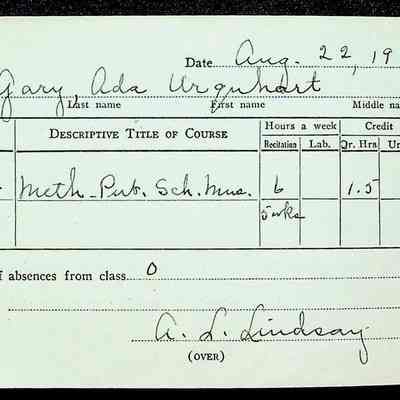 Date Aug. 22, 19
Gary, Ada Urquhart
Last name First name Middle na
DESCRIPTIVE TITLE OF COURSE Hours a week Credit
Recitation Lab. Qr. Hrs Un
Meth. Pub. Sch. Mus. 6 1.5
5 wks
f absences from class 0
A. L. Lindsay
(OVER)